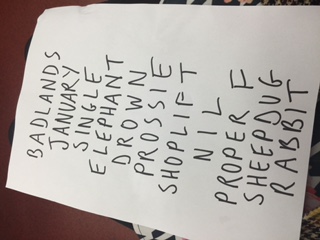 BADLANDS
JANUARY
SINGLE
ELEPHANT
DROWN
PROSSIE
SHOPLIFT
NIL
PROPER F
SHEEPDUG
RABBIT